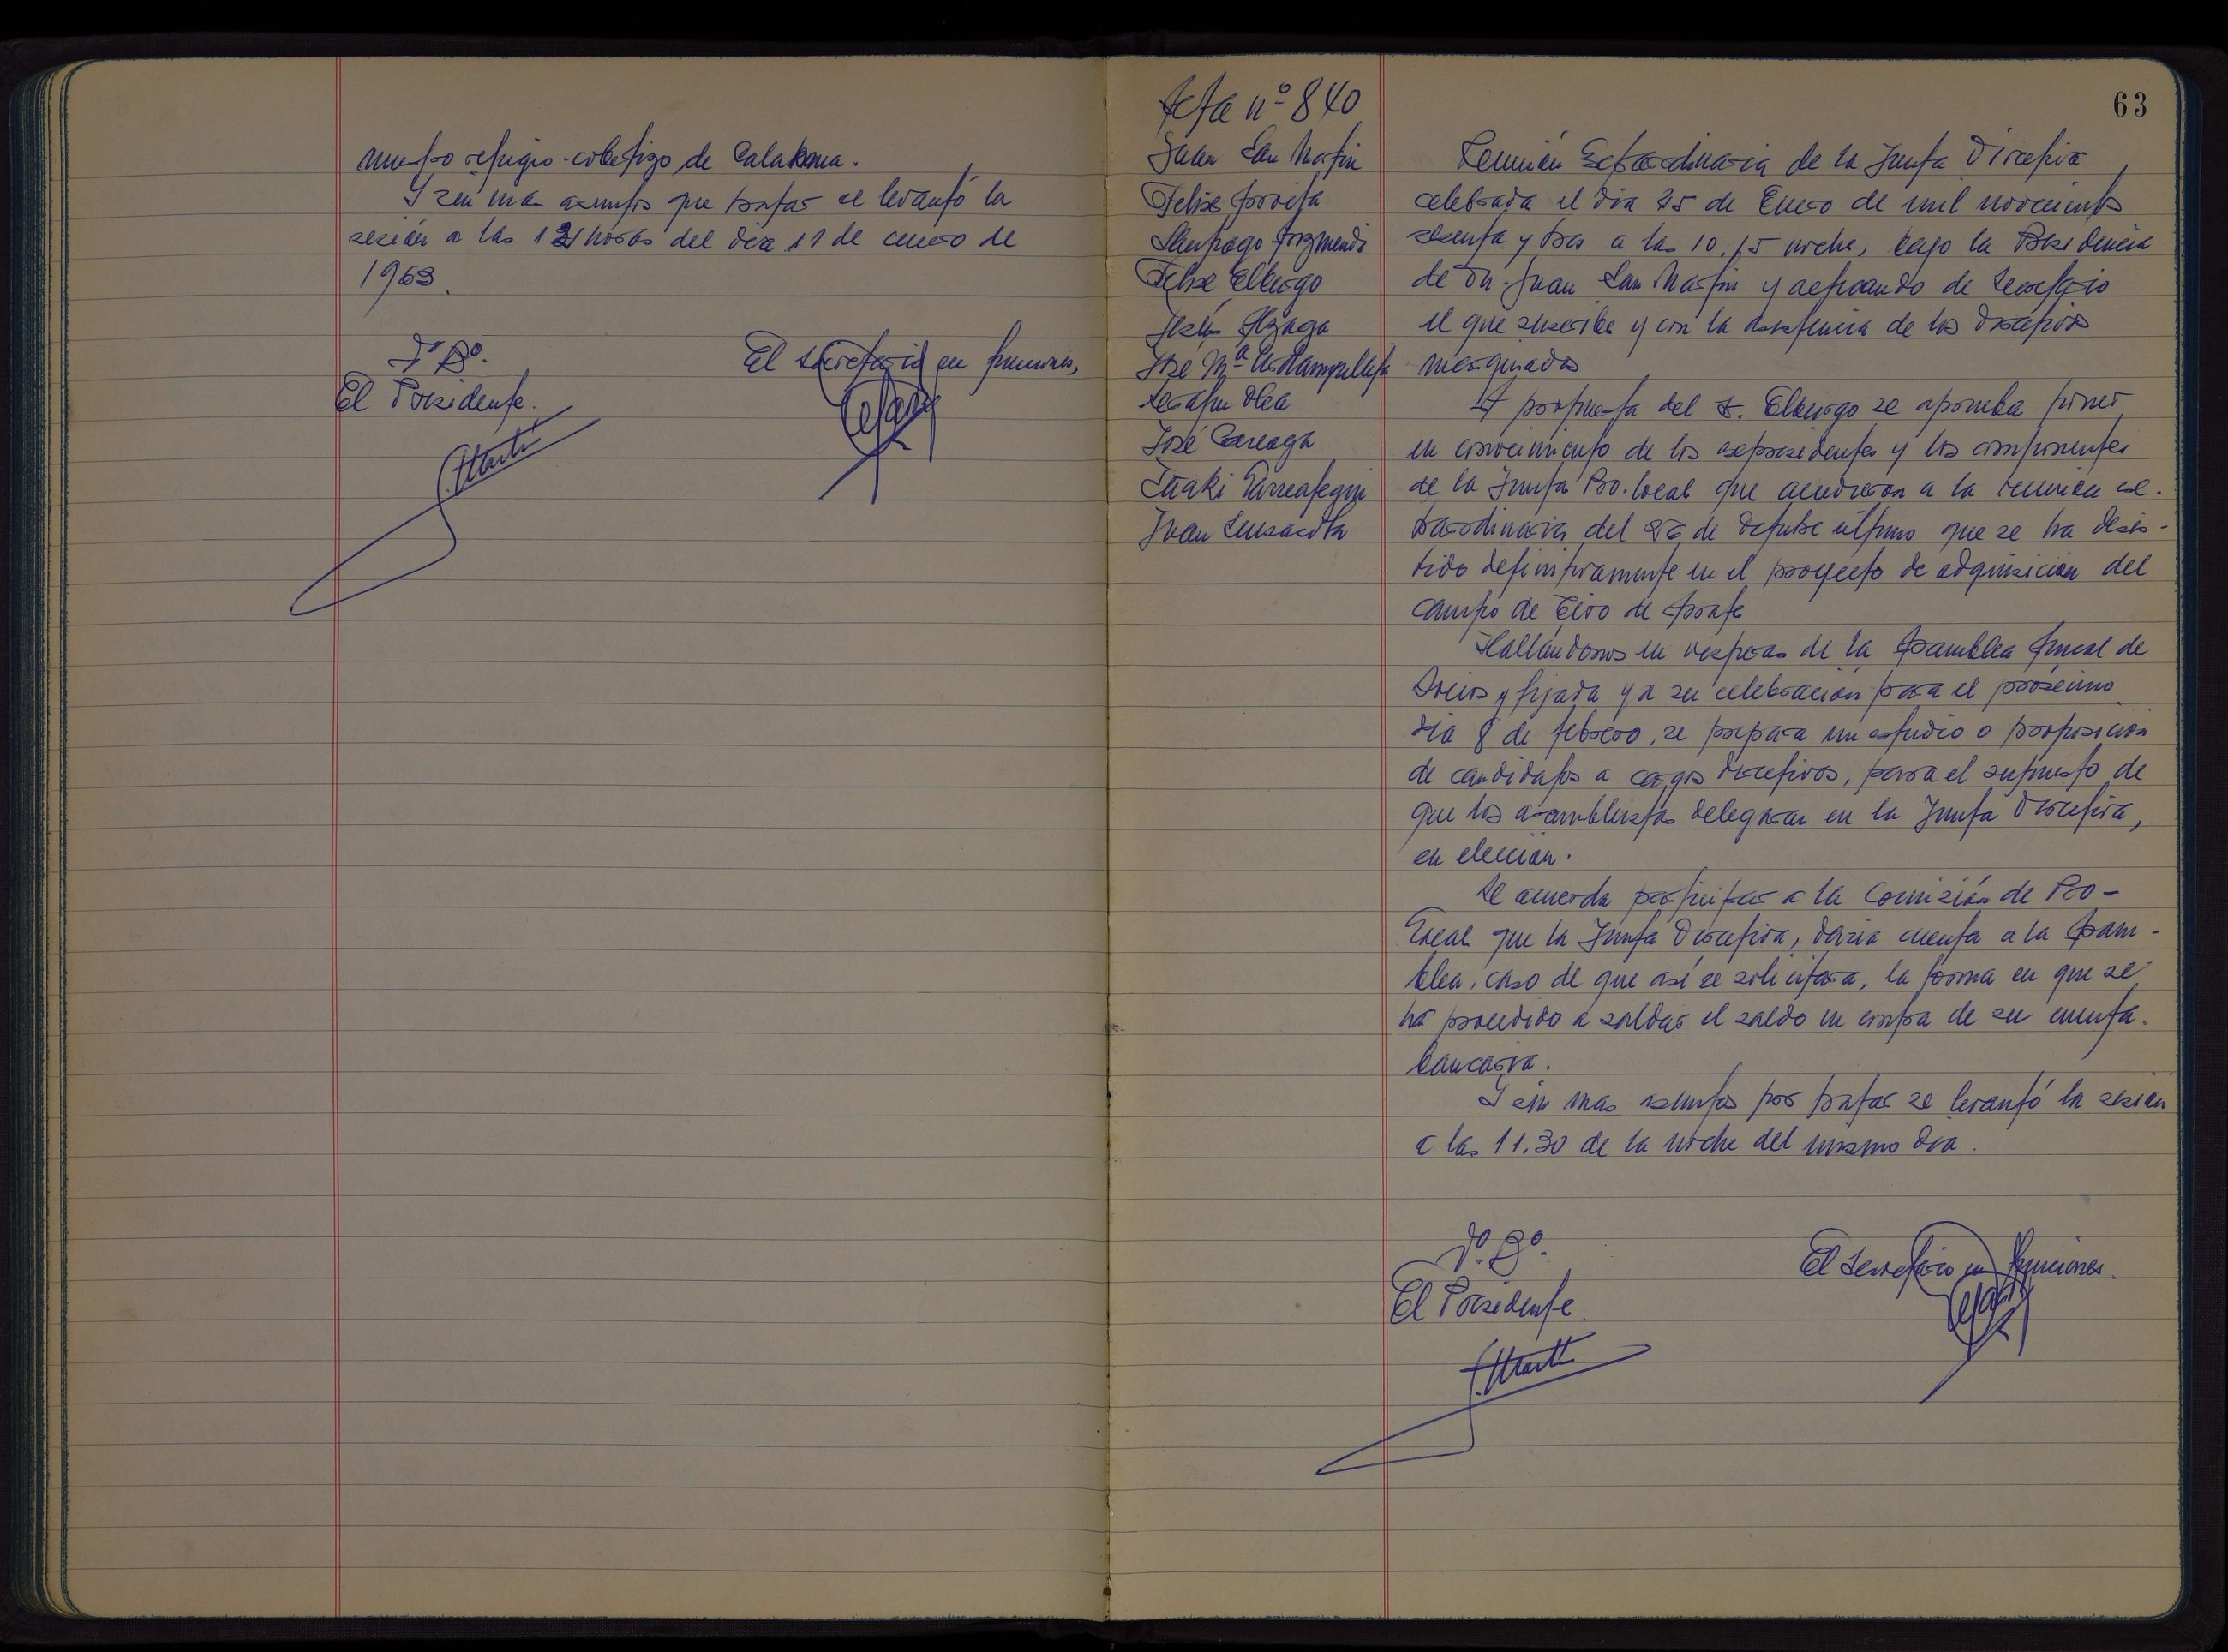 nuestro refugio-cobertizo de Kalamua.
Y sin mas asuntos que tratar se levantó la
sesión a las horas del dia 11 de enero de
1963.
Vº Bº.
El Presidente.
El Secretario en funciones,
S. Martin
63
Acta nº 840
Juan San Martin
Felix Arrieta
Santiago Arizmendi
Felix Elburgo
Jesús Alzaga
José Mª
Serafin Olea
José Careaga
Iñaki
Juan
Reunión Extraordinaria de la Junta Directiva
celebrada el dia 25 de Enero de mil novecientos
sesenta y tres a las 10,15 noche, bajo la Presidencia
de Dn. Juan San Martin y actuando de Secretario
el que suscribe y con la asistencia de los directivos
marginados
A propuesta del Sr. Elburgo se aprueba poner
en conocimiento de los expresidentes y los componentes
de la Junta Pro-local que acudieron a la reunión ex-
traordinaria del 26 de último que se ha desis-
tido definitivamente en el proyecto de adquisición del
campo de tiro de Arrate
Hallandonos en visperas de la Asamblea General de
Socios y fijada ya su celebración para el próximo
dia 8 de febrero, se prepara un estudio o proposición
de candidatos a cargos directivos, para el supuesto de
que los asambleistas delegaran en la Junta Directiva,
su elección.
Se acuerda participar a la Comisión de Pro-
Local que la Junta Directiva, daria cuenta a la Asam-
blea, caso de que asi se solicitara, la forma en que se
ha procedido a saldar el saldo en contra de su cuenta
bancaria.
Y sin mas asuntos por tratar se levantó la sesión
a las 11,30 de la noche del mismo dia.
Vº. Bº.
El Presidente.
El Secretario en funciones.
S. Martin